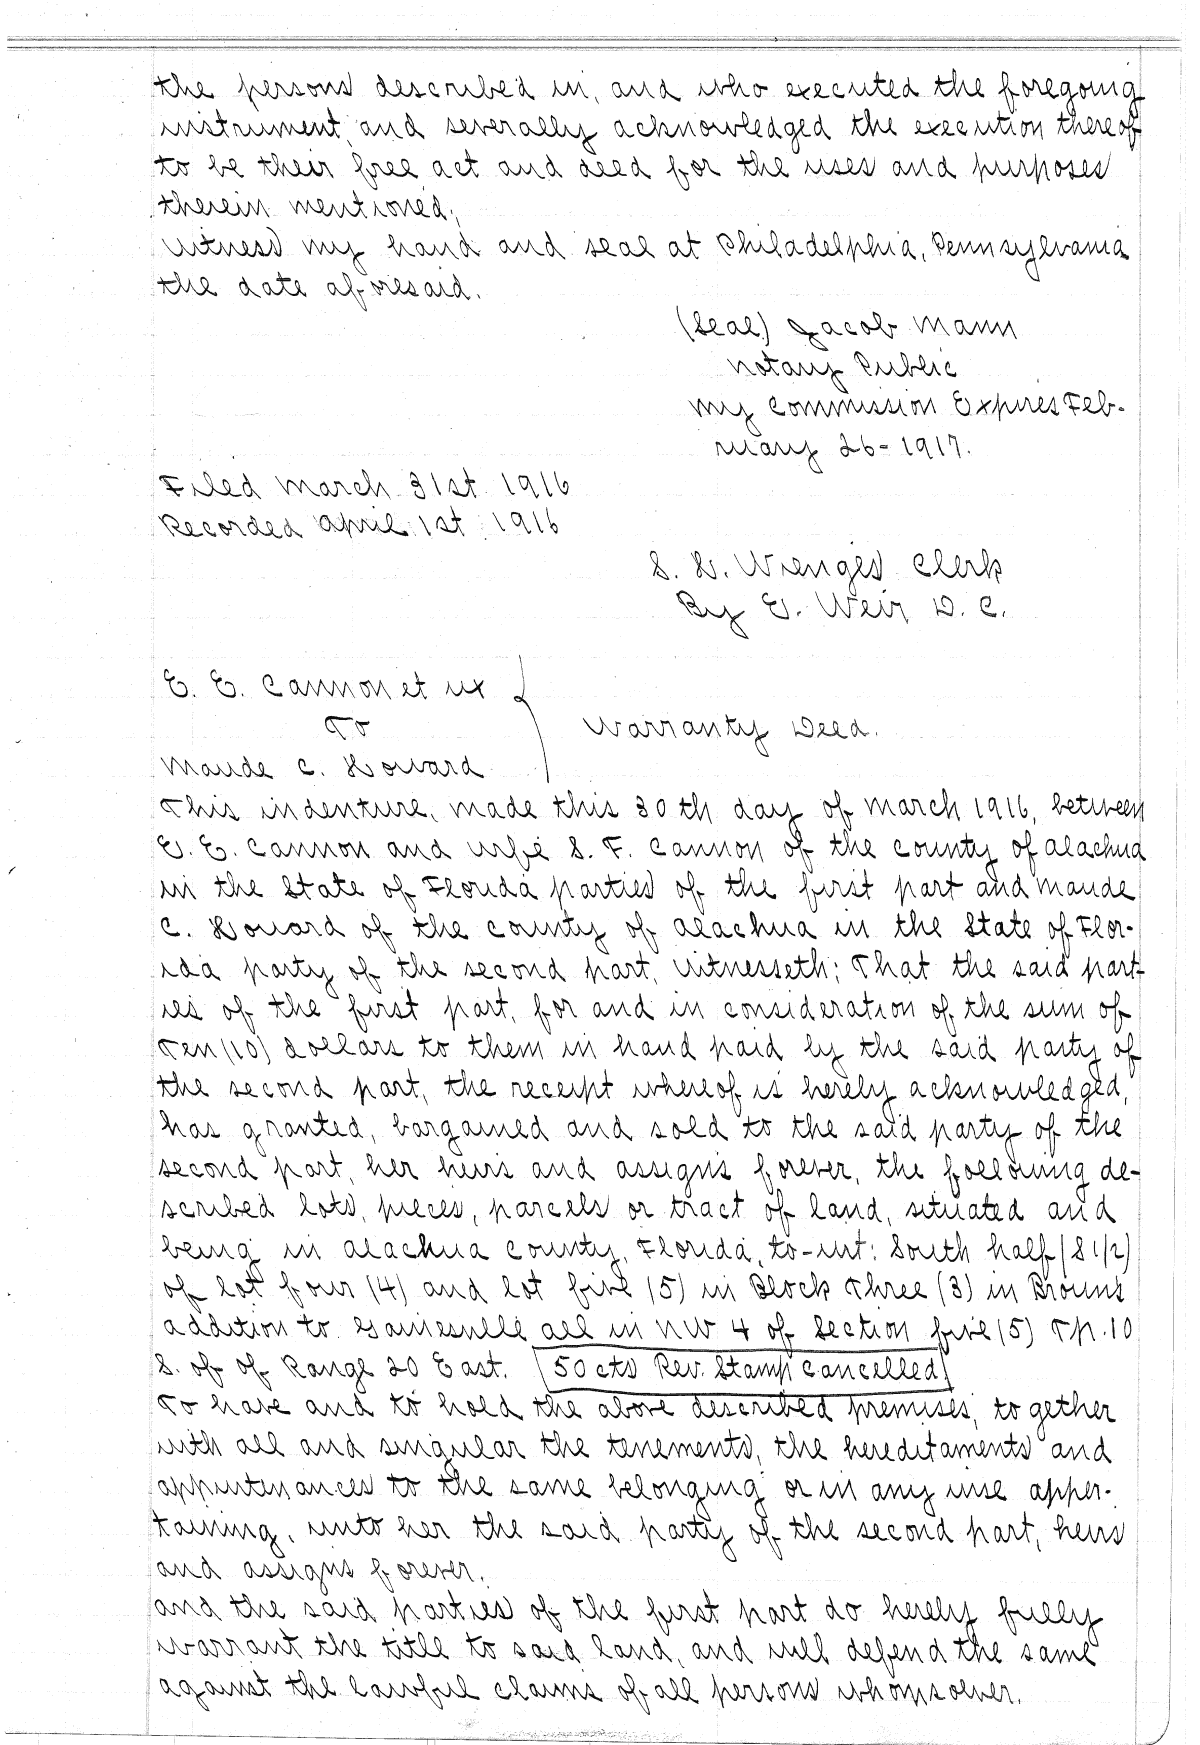 the persons described in, and who executed the foregoing
instrument, and severally acknowledged the execution thereof
to be their free act and deed for the uses and purposes
therein mentioned.
Witness my hand and seal at Philadelphia, Pennsylvania
the date aforesaid.
(Seal) Jacob Mann
Notary Public
My Commission Expires Feb-
ruary 26-1917.
Filed March 31st 1916
Recorded April 1st 1916
S. H. Wienges Clerk
By E. Weir D. C.
E. E. Cannon et ux
To
Warranty Deed.
Maude C. Howard
This indenture, made this 30th day of March 1916, between
E. E. Cannon and wife S. F. Cannon of the county of Alachua
in the State of Florida parties of the first part and Maude
C. Howard of the county of Alachua in the State of Flor-
ida party of the second part, Witnesseth; That the said part-
ies of the first part, for and in consideration of the sum of
Ten (10) dollars to them in hand paid by the said party of
the second part, the receipt whereof is hereby acknowledged,
has granted, bargained and sold to the said party of the
second part, her heirs and assigns forever, the following de-
scribed lots, pieces, parcels or tract of land, situated and
being in Alachua County, Florida, to-wit: South half (S 1/2)
of lot four (4) and lot five (5) in Block Three (3) in Browns
addition to Gainesville all in NW 4 of Section five (5) Tp. 10
S. of of Range 20 East. 50 cts Rev. Stamp Cancelled
To have and to hold the above described premises, together
with all and singular the tenements, the hereditaments and
appurtenances to the same belonging or in any wise apper-
taining, unto her the said party of the second part, heirs
and assigns forever.
And the said parties of the first part do hereby fully
warrant the title to said land, and will defend the same
against the lawful claims of all persons whomsoever.